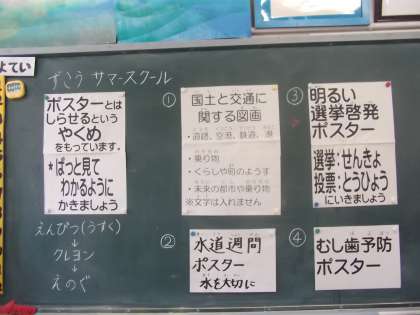 よてい
ずこう サマースクール
ポスターとは
しらせるという
やくめ
をもっています。
*ぱっと見て
わかるように
かきましょう
えんぴつ(うすく)
↓
クレヨン
↓
えのぐ
①
国土と交通に
関する図画
・道路、空港、鉄道、港
・乗り物
・くらしや町のようす
・未来の都市や乗り物
※文字は入れません
②
水道週間
ポスター
水を大切に
③
明るい
選挙啓発
ポスター
選挙:せんきょ
投票:とうひょう
にいきましょう
④
むし歯予防
ポスター